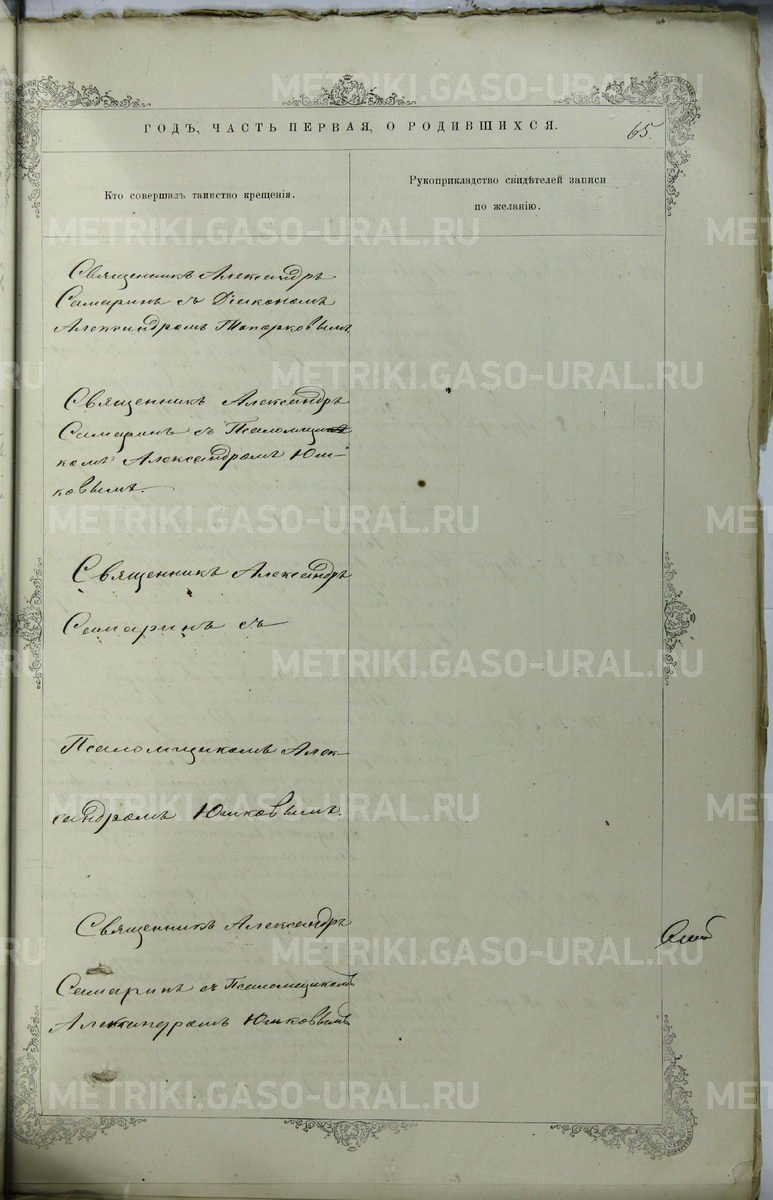 ГОДЪ, ЧАСТЬ ПЕРВАЯ, О РОДИВШИХСЯ.
65.
Кто совершалъ таинство крещенія.
Рукоприкладство свидѣтелей записи
по желанію.
Священникъ Александръ
Самаринъ съ Діакономъ
Александромъ Топорковымъ
Священникъ Александръ
Самаринъ съ Псаломщи
комъ Александромъ Юш-
ковымъ.
Священникъ Александръ
Самаринъ съ
Псаломщикомъ Алек-
сандромъ Юшковымъ.
Священникъ Александръ
Самаринъ съ Псаломщикомъ
Александромъ Юшковымъ
METRIKI.GASO-URAL.RU